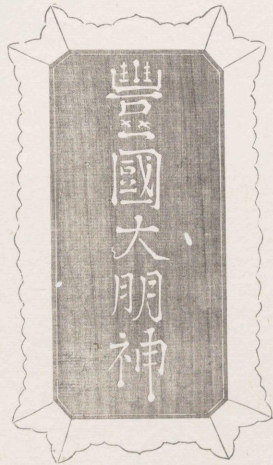 豐國大朋神